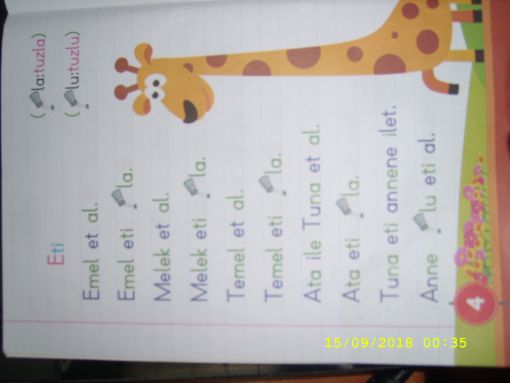 ( la:tuzla)
( lu:tuzlu)
Eti
Emel et al.
Emel eti la.
Melek et al.
Melek eti la.
Temel et al.
Temel eti la.
Ata ile Tuna et al.
Ata eti la.
Tuna eti annene ilet.
Anne lu eti al.
4
15/09/2018 00:35